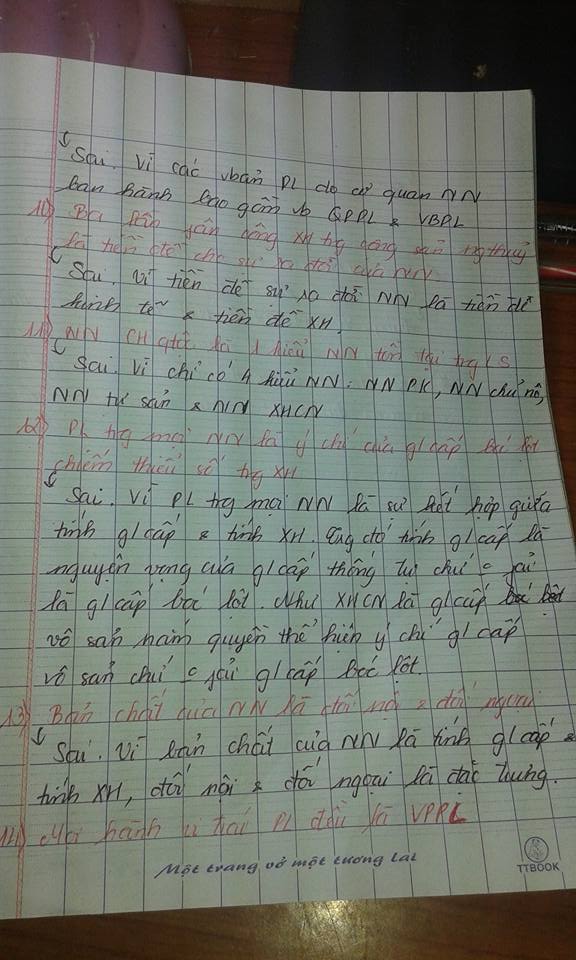 Sai. Vì các vbản PL do cơ quan NN
ban hành bao gồm vb QPPL & VBPL
10) Ba lần phân công XH trg công sản ng thuỷ
là tiền đề cho sự ra đời của NN
Sai. Vì tiền đề sự ra đời NN là tiền đề
kinh tế & tiền đề XH.
11) NN CH qtốc là 1 kiểu NN tồn tại trg LS
Sai. Vì chỉ có 4 kiểu NN: NN PK, NN chủ nô,
NN tư sản & NN XHCN
12) PL trg mọi NN là ý chí của g/cấp bóc lột
chiếm thiểu số trg XH
Sai. Vì PL trg mọi NN là sự kết hợp giữa
tính g/cấp & tính XH. Trg đó tính g/cấp là
nguyện vọng của g/cấp thống trị chứ ko phải
là g/cấp bóc lột. Như XHCN là g/cấp
vô sản nắm quyền thể hiện ý chí g/cấp
vô sản chứ ko phải g/cấp bóc lột.
13) Bản chất của NN là đối nội & đối ngoại
Sai. Vì bản chất của NN là tính g/cấp &
tính XH, đối nội & đối ngoại là đặc trưng.
14) Mọi hành vi trái PL đều là VPPL
Một trang vở một tương lai
TTBOOK